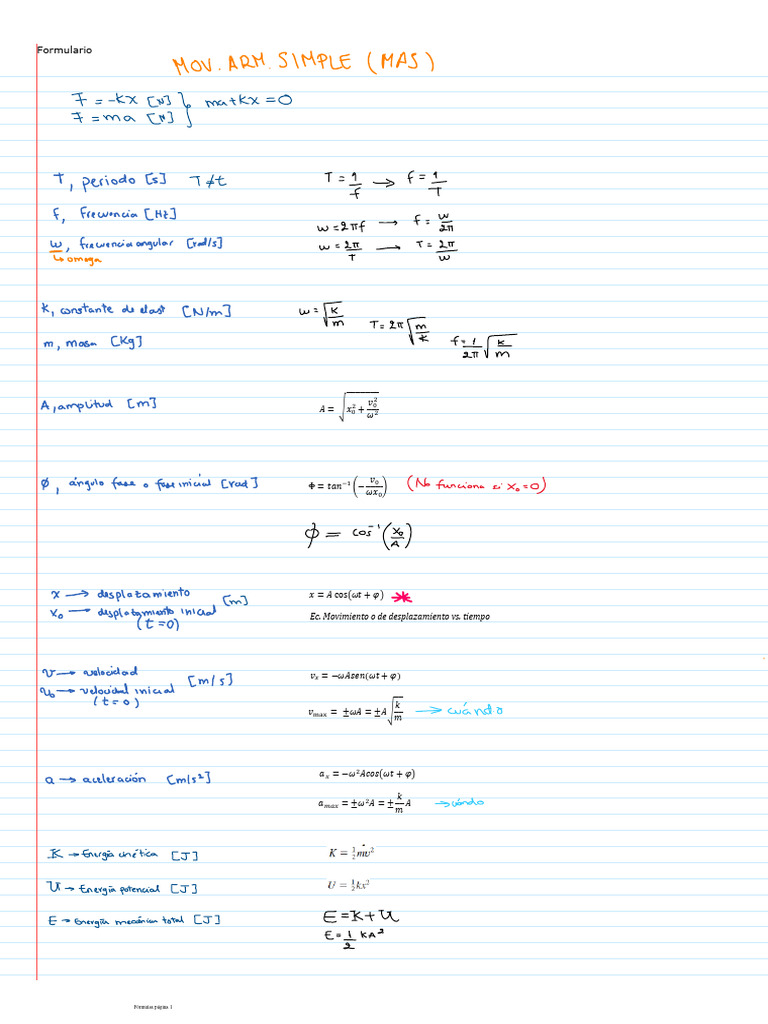 Formulario
MOV. ARM. SIMPLE (MAS)
F = -kx [N] } ma+kx=0
F = ma [N]
T, periodo [s] T≠t T = 1/f → f = 1/T
f, frecuencia [Hz]
ω = 2πf → f = ω/2π
ω, frecuencia angular [rad/s] ω = 2π/T → T = 2π/ω
↳ omega
k, constante de elast [N/m] ω = √(k/m)
T = 2π√(m/k)
m, masa [Kg] f = 1/2π √(k/m)
A, amplitud [m] A = √(x₀² + v₀²/ω²)
ϕ, ángulo fase o fase inicial [rad] Φ = tan⁻¹(−v₀/ωx₀) (No funciona si x₀=0)
ϕ = cos⁻¹(x₀/A)
x → desplazamiento [m] x = A cos(ωt + φ) *
x₀ → desplazamiento inicial
(t=0)
Ec. Movimiento o de desplazamiento vs. tiempo
v → velocidad [m/s] vₓ = −ωAsen(ωt + φ)
v₀ → velocidad inicial
(t=0)
vmax = ±ωA = ±A√(k/m) → cuándo
a → aceleración [m/s²] aₓ = −ω²Acos(ωt + φ)
amax = ±ω²A = ±k/m A → cúando
K → Energía cinética [J] K = ½mv²
U → Energía potencial [J] U = ½kx²
E → Energía mecánica total [J] E = K + U
E = 1/2 KA²
Fórmulas página 1